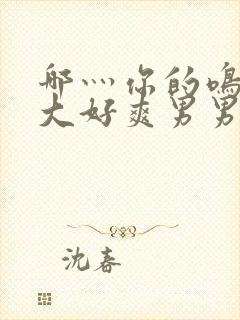 哪灬你的鸣
大好爽男男
沈春